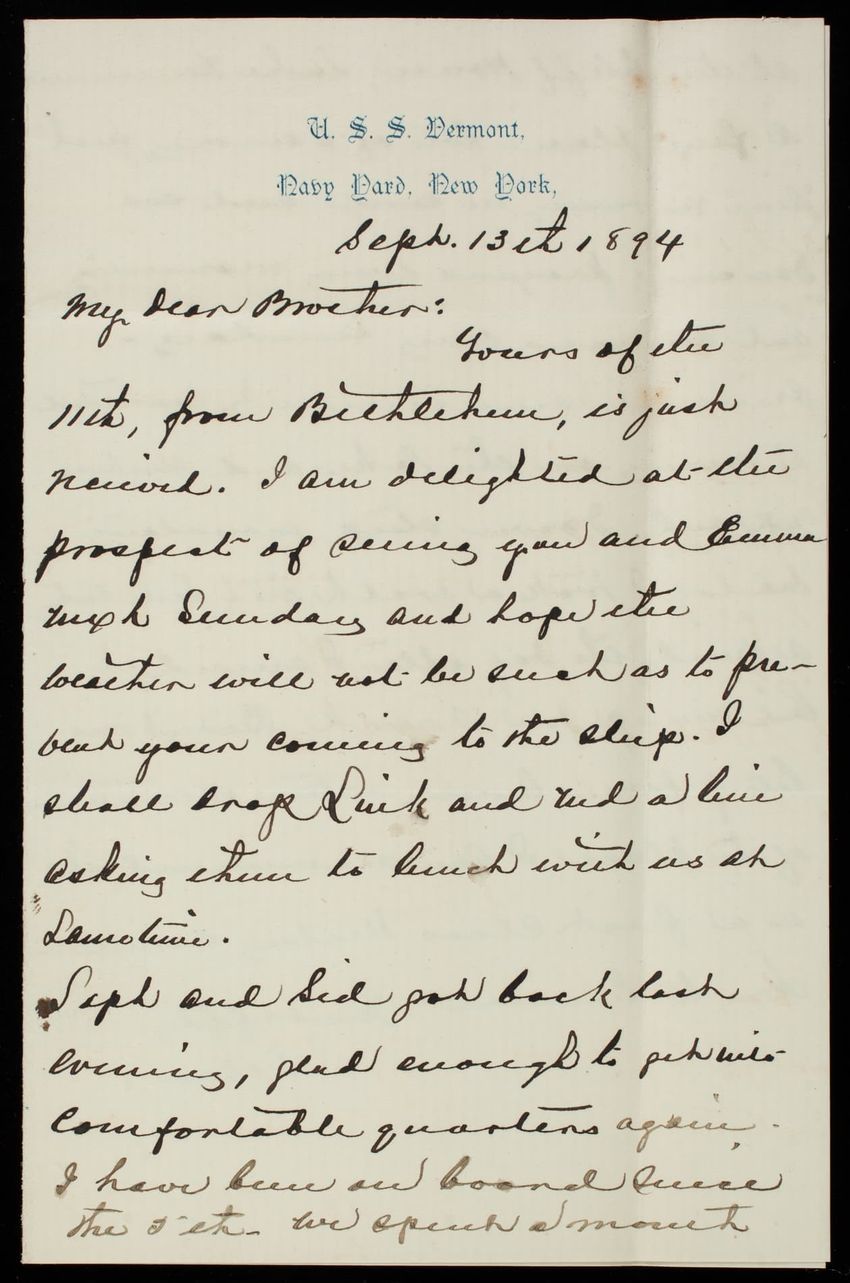 U. S. S. Vermont,
Navy Yard, New York,
Sept. 13th 1894
My Dear Brother:
Yours of the
11th, from Bethlehem, is just
received. I am delighted at the
prospect of seeing you and Emma
next Sunday and hope the
weather will not be such as to pre-
vent your coming to the ship. I
shall drop Link and Ned a line
asking them to lunch with us at
same time.
Seph and Sid got back last
evening, glad enough to get into
comfortable quarters again.
I have been on board since
the 5th. We spent a month